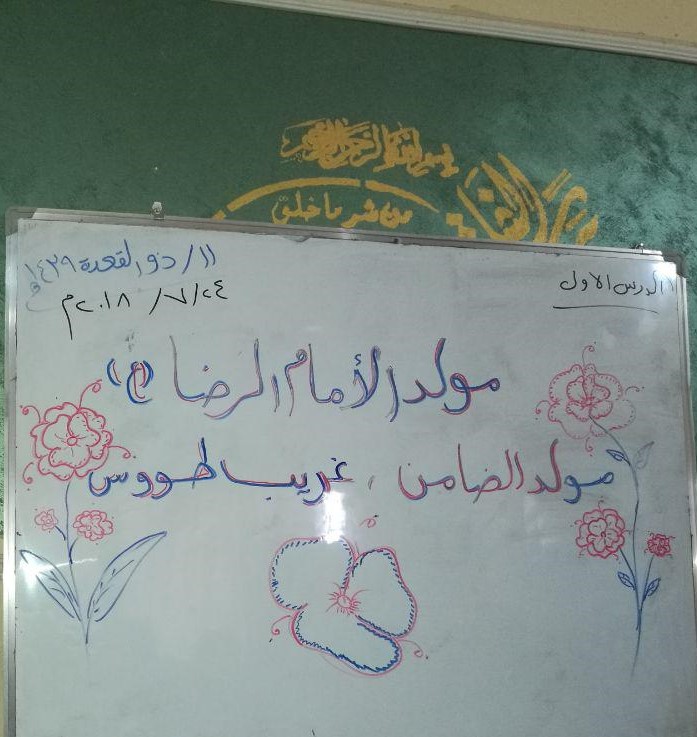 بسم الله الرحمن الرحيم
من شر ما خلق
الدرس الاول
١١/ ذو القعدة ١٤٣٩ه
٢٤/ ٧/ ٢٠١٨م
مولد الأمام الرضا (ع)
مولد الضامن ، غريب طووس